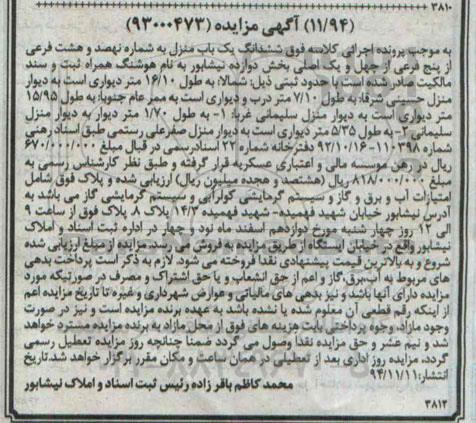 ۳۸۱۰
(۱۱/۹۴) آگهی مزایده (۹۳۰۰۰۴۷۳)
به موجب پرونده اجرائی کلاسه فوق ششدانگ یک باب منزل به شماره نهصد و هشت فرعی
از پنج فرعی از چهل و یک اصلی بخش دوازده نیشابور به نام هوشنگ همراه ثبت و سند
مالکیت صادر شده است با حدود ثبتی ذیل: شمالا: به طول ۱۶/۱۰ متر دیواری است به دیوار
منزل حسینی شرقا: به طول ۷/۱۰ متر درب و دیواری است به ممر عام جنوبا: به طول ۱۵/۹۵
متر دیواری است به دیوار منزل سلیمانی غربا: ۱- به طول ۱/۷۰ متر دیواری است به دیوار منزل
سلیمانی ۲- به طول ۵/۳۵ متر دیواری است به دیوار منزل صفرعلی رستمی طبق اسناد رهنی
شماره ۱۱۰۳۹۸-۹۲/۱۰/۱۶ دفترخانه شماره ۲۲ اسنادرسمی در قبال مبلغ ۶۷۰/۰۰۰/۰۰۰
ریال در رهن موسسه مالی و اعتباری عسکریه قرار گرفته و طبق نظر کارشناس رسمی به
مبلغ ۸۱۸/۰۰۰/۰۰۰ ریال (هشتصد و هجده میلیون ریال) ارزیابی شده و پلاک فوق شامل
امتیازات آب و برق و گاز و سیستم گرمایشی کولرآبی و سیستم گرمایشی گاز می باشد به
آدرس نیشابور خیابان شهید فهمیده- شهید فهمیده ۱۴/۳ پلاک ۸. پلاک فوق از ساعت ۹
الی ۱۲ روز چهار شنبه مورخ دوازدهم اسفند ماه نود و چهار در اداره ثبت اسناد و املاک
نیشابور واقع در خیابان ایستگاه از طریق مزایده به فروش می رسد. مزایده از مبلغ ارزیابی شده
شروع و به بالاترین قیمت پیشنهادی نقدا فروخته می شود. لازم به ذکر است پرداخت بدهی
های مربوط به آب،برق،گاز و اعم از حق انشعاب و یا حق اشتراک و مصرف در صورتیکه مورد
مزایده دارای آنها باشد و نیز بدهی های مالیاتی و عوارض شهرداری و غیره تا تاریخ مزایده اعم
از اینکه رقم قطعی آن معلوم شده یا نشده باشد به عهده برنده مزایده است و نیز در صورت
وجود مازاد، وجوه پرداختی بابت هزینه های فوق از محل مازاد به برنده مزایده مسترد خواهد
شد و نیم عشر و حق مزایده نقدا وصول می گردد ضمنا چنانچه روز مزایده تعطیل رسمی
گردد، مزایده روز اداری بعد از تعطیلی در همان ساعت و مکان مقرر برگزار خواهد شد.تاریخ
انتشار:۹۴/۱۱/۱۱
محمد کاظم باقر زاده رئیس ثبت اسناد و املاک نیشابور
۳۸۱۲